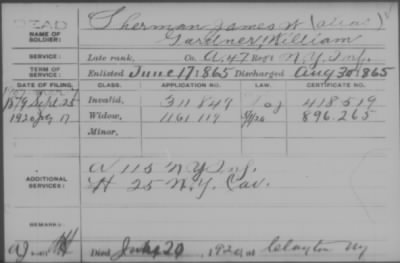 DEAD
NAME OF SOLDIER: Sherman James W (alias)
Gardner, William
SERVICE: Late rank, Co. A, 47 Reg't N.Y. Inf.
TERM OF SERVICE: Enlisted June 17, 1865 Discharged Aug 30 1865
DATE OF FILING. CLASS. APPLICATION NO. LAW. CERTIFICATE NO.
1879 Sept. 25 Invalid, 311 849 418 519
1920 17 Widow, 1161 119 896.265
Minor,
ADDITIONAL SERVICES: A 115 N.Y. Inf.
H 25 N.Y. Cav.
REMARKS:
Died 20, 1920, at Clayton NY